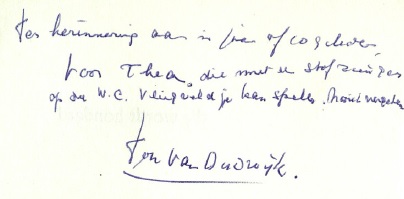 Ter herinnering aan in jaar of
voor Thea, die met een stofzuiger
op de W.C. Vliegveldje kan spelen. Nooit vergeten
Ton van Duinwijk.